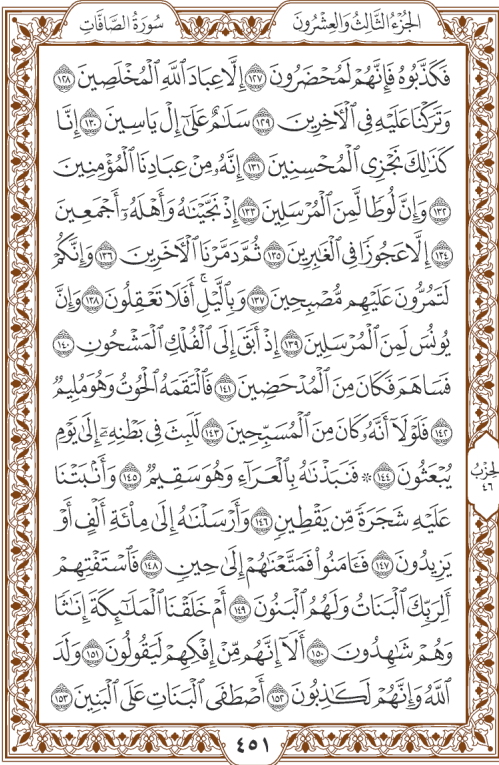 الجُزْءُ الثَّالِثُ وَالعِشْرُونَ
سُورَةُ الصَّافَّاتِ
فَكَذَّبُوهُ فَإِنَّهُمْ لَمُحْضَرُونَ ١٢٧ إِلَّا عِبَادَ ٱللَّهِ ٱلْمُخْلَصِينَ ١٢٨
وَتَرَكْنَا عَلَيْهِ فِي ٱلْءَاخِرِينَ ١٢٩ سَلَٰمٌ عَلَىٰٓ إِلْ يَاسِينَ ١٣٠ إِنَّا
كَذَٰلِكَ نَجْزِي ٱلْمُحْسِنِينَ ١٣١ إِنَّهُۥ مِنْ عِبَادِنَا ٱلْمُؤْمِنِينَ
١٣٢ وَإِنَّ لُوطًا لَّمِنَ ٱلْمُرْسَلِينَ ١٣٣ إِذْ نَجَّيْنَٰهُ وَأَهْلَهُۥٓ أَجْمَعِينَ
١٣٤ إِلَّا عَجُوزًا فِي ٱلْغَٰبِرِينَ ١٣٥ ثُمَّ دَمَّرْنَا ٱلْءَاخَرِينَ ١٣٦ وَإِنَّكُمْ
لَتَمُرُّونَ عَلَيْهِم مُّصْبِحِينَ ١٣٧ وَبِٱلَّيْلِۚ أَفَلَا تَعْقِلُونَ ١٣٨ وَإِنَّ
يُونُسَ لَمِنَ ٱلْمُرْسَلِينَ ١٣٩ إِذْ أَبَقَ إِلَى ٱلْفُلْكِ ٱلْمَشْحُونِ ١٤٠
فَسَاهَمَ فَكَانَ مِنَ ٱلْمُدْحَضِينَ ١٤١ فَٱلْتَقَمَهُ ٱلْحُوتُ وَهُوَ مُلِيمٌ
١٤٢ فَلَوْلَآ أَنَّهُۥ كَانَ مِنَ ٱلْمُسَبِّحِينَ ١٤٣ لَلَبِثَ فِي بَطْنِهِۦٓ إِلَىٰ يَوْمِ
يُبْعَثُونَ ١٤٤ ۞ فَنَبَذْنَٰهُ بِٱلْعَرَآءِ وَهُوَ سَقِيمٌ ١٤٥ وَأَنۢبَتْنَا
عَلَيْهِ شَجَرَةً مِّن يَقْطِينٍ ١٤٦ وَأَرْسَلْنَٰهُ إِلَىٰ مِا۟ئَةِ أَلْفٍ أَوْ
يَزِيدُونَ ١٤٧ فَـَٔامَنُوا۟ فَمَتَّعْنَٰهُمْ إِلَىٰ حِينٍ ١٤٨ فَٱسْتَفْتِهِمْ
أَلِرَبِّكَ ٱلْبَنَاتُ وَلَهُمُ ٱلْبَنُونَ ١٤٩ أَمْ خَلَقْنَا ٱلْمَلَٰٓئِكَةَ إِنَٰثًا
وَهُمْ شَٰهِدُونَ ١٥٠ أَلَآ إِنَّهُم مِّنْ إِفْكِهِمْ لَيَقُولُونَ ١٥١ وَلَدَ
ٱللَّهُ وَإِنَّهُمْ لَكَٰذِبُونَ ١٥٢ أَصْطَفَى ٱلْبَنَاتِ عَلَى ٱلْبَنِينَ ١٥٣
الحِزْبُ
٤٦
٤٥١